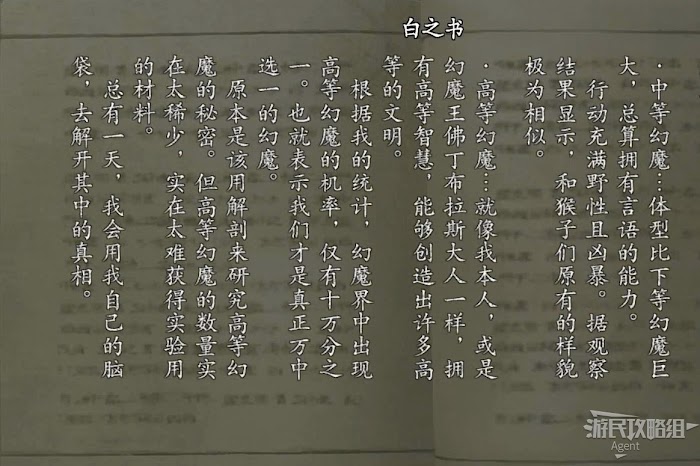 白之书
·中等幻魔…体型比下等幻魔巨
大，总算拥有言语的能力。
行动充满野性且凶暴。据观察
结果显示，和猴子们原有的样貌
极为相似。
·高等幻魔…就像我本人，或是
幻魔王佛丁布拉斯大人一样，拥
有高等智慧，能够创造出许多高
等的文明。
根据我的统计，幻魔界中出现
高等幻魔的机率，仅有十万分之
一。也就表示我们才是真正万中
选一的幻魔。
原本是该用解剖来研究高等幻
魔的秘密。但高等幻魔的数量实
在太稀少，实在太难获得实验用
的材料。
总有一天，我会用我自己的脑
袋，去解开其中的真相。
游民攻略组
Agent